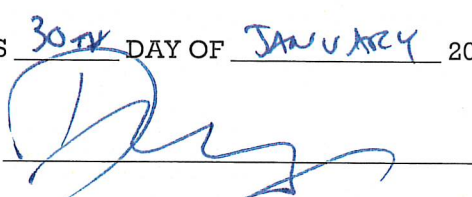 S 30TH DAY OF JANUARY 20